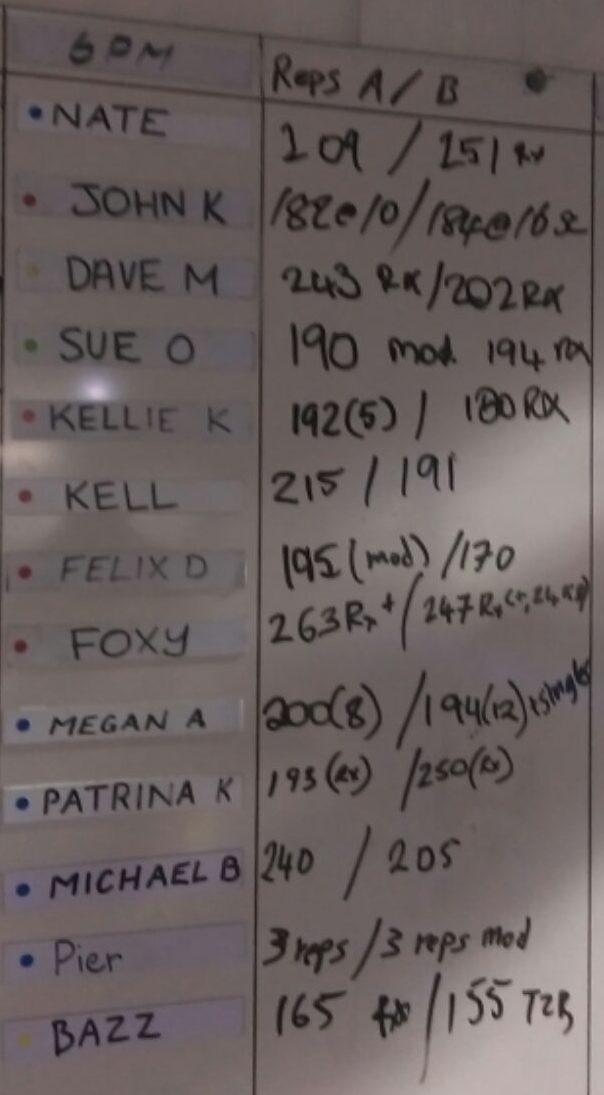 6PM Reps A / B
NATE 209 / 251 Rx
JOHN K 182@10/184@16
DAVE M 243 RX/202RX
SUE O 190 mod 194 RX
KELLIE K 192(5) / 180 RX
KELL 215 / 191
FELIX D 195 (mod) /170
FOXY 263 Rx+/247 Rx
MEGAN A 200(8) /194(12) singles
PATRINA K 193 (Rx) /250(Rx)
MICHAEL B 240 / 205
Pier 3 reps / 3 reps mod
BAZZ 165 /155 T2B